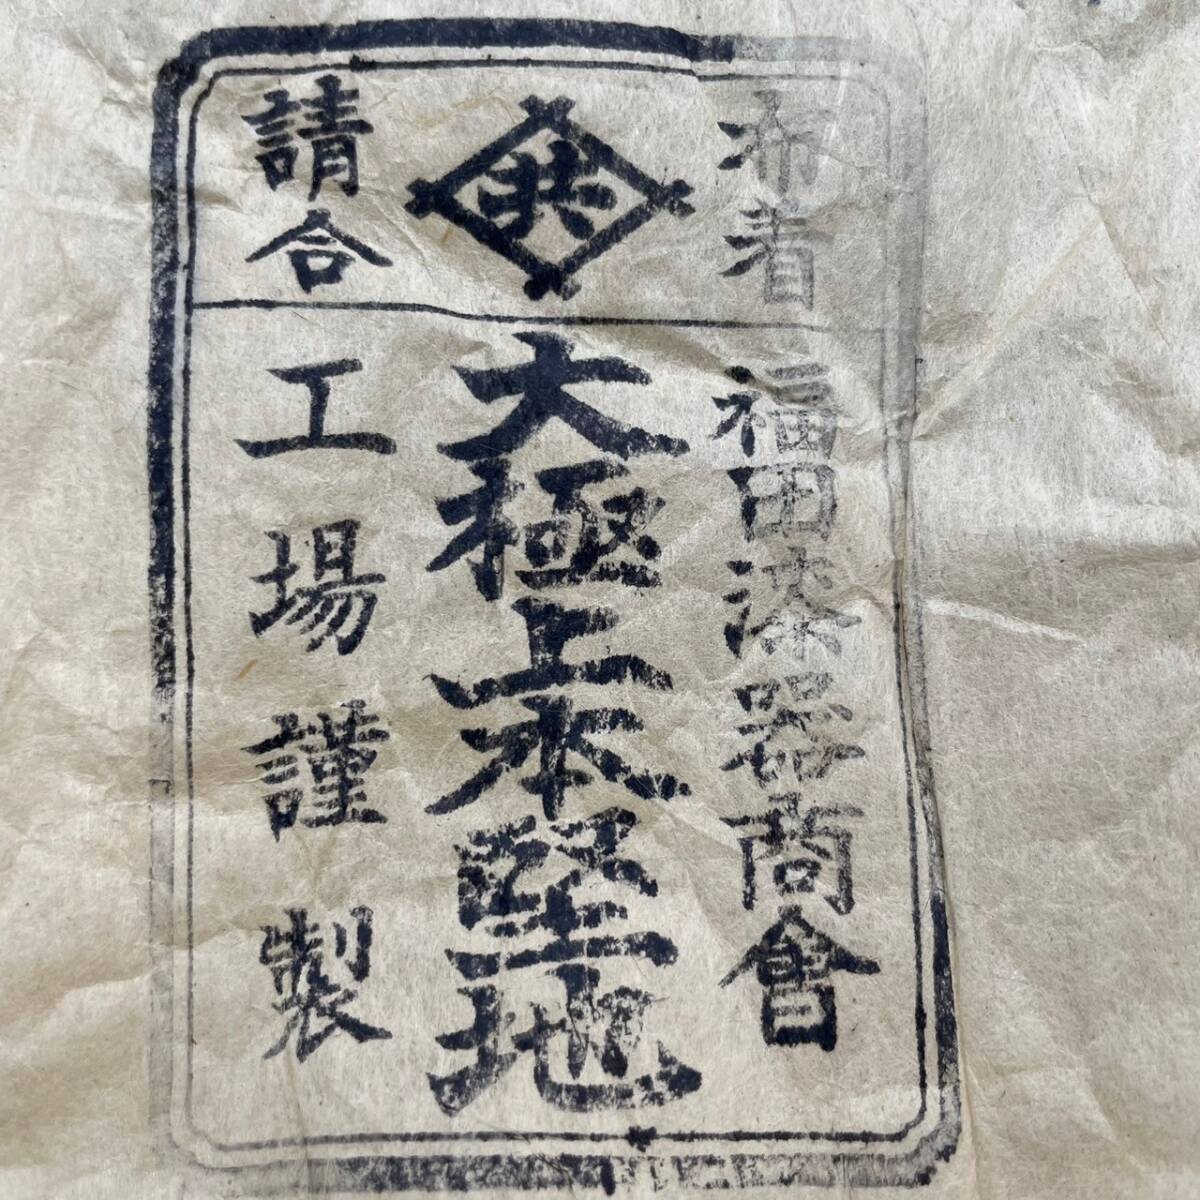 布着
共
請合
福田漆器商會
大極上本堅地
工場謹製